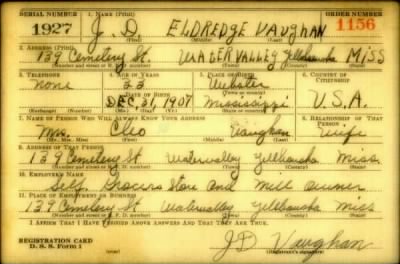 SERIAL NUMBER 1. NAME (Print) ORDER NUMBER
1927 J. D. ELDREDGE VAUGHAN 1156
(First) (Middle) (Last)
2. ADDRESS (Print)
139 Cemetery St. WATER VALLEY Yalobousha MISS
(Number and street or R. F. D. number) (Town) (County) (State)
3. TELEPHONE 4. AGE IN YEARS 5. PLACE OF BIRTH 6. COUNTRY OF CITIZENSHIP
None 33
DATE OF BIRTH
DEC. 31, 1907 Mississippi U.S.A.
(Exchange) (Number) (Mo.) (Day) (Yr.) (State or country)
7. NAME OF PERSON WHO WILL ALWAYS KNOW YOUR ADDRESS 8. RELATIONSHIP OF THAT PERSON
Mrs. Cleo Vaughan Wife
(Mr., Mrs., Miss) (First) (Middle) (Last)
9. ADDRESS OF THAT PERSON
139 Cemetery St Watervalley Miss.
(Number and street or R. F. D. number) (Town) (County) (State)
10. EMPLOYER'S NAME
Self. Grocery Store and Mill owner
11. PLACE OF EMPLOYMENT OR BUSINESS
139 Cemetery St Watervalley Miss
(Number and street or R. F. D. number) (Town) (County) (State)
I AFFIRM THAT I HAVE VERIFIED ABOVE ANSWERS AND THAT THEY ARE TRUE.
REGISTRATION CARD
D. S. S. Form 1 JD Vaughan
(Registrant's signature)